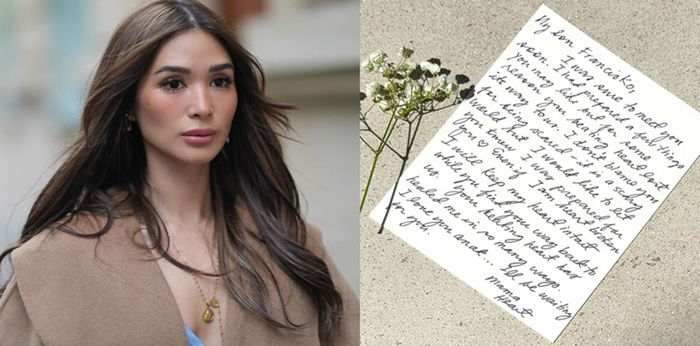 My son Francisko,
I was sure to meet you
soon. I had prepared a few things
you may like but for some
reason, your beating heart lost
it way. I don't blame you
for being scared it is a scary
world but I would like to let
you know I was prepared for
you ♡ Even if I am heart broken
I will keep my heart intact
while you find your way back to
us. Your beating heart had
healed me in so many ways.
I love you anak... I'll be waiting
for you.
Mama
Heart